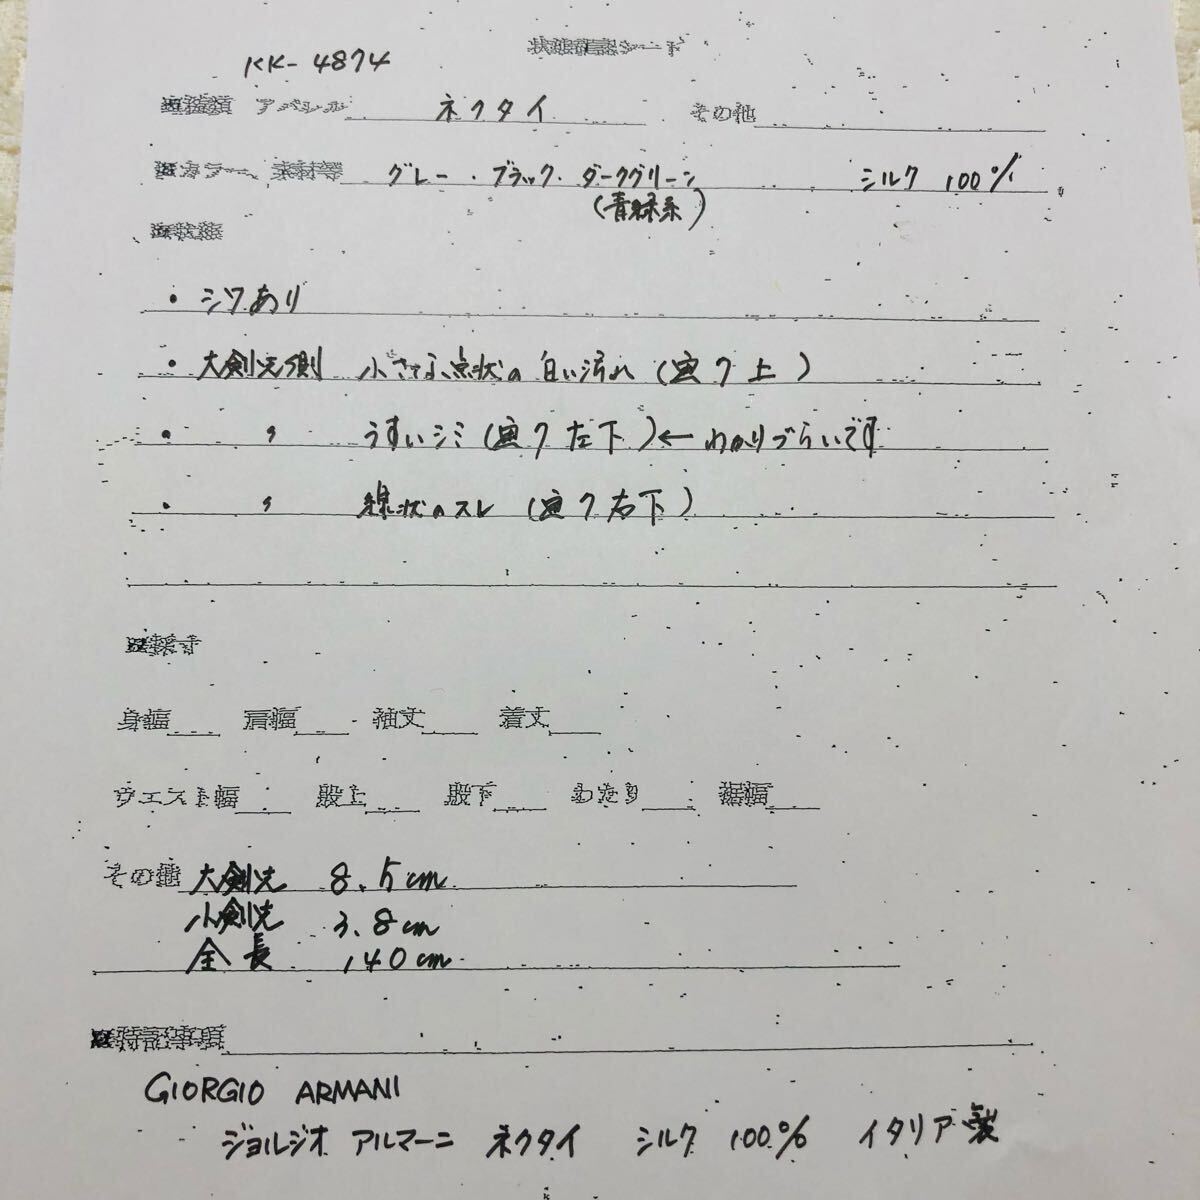 状態確認シート
KK-4874
■種類 アパレル ネクタイ その他
■カラー、素材等 グレー・ブラック・ダークグリーン シルク 100%
(青緑系)
■状態
・シワあり
・大剣先側 小さな点状の白い汚れ(ロゴ上)
・ 〃 うすいシミ( 左下)←わかりづらいです
・ 〃 線状のスレ( 右下)
■採寸
身幅 肩幅 袖丈 着丈
ウエスト幅 股上 股下 わたり 裾幅
その他 大剣先 8.5cm
小剣先 3.8cm
全長 140cm
■特記事項
GIORGIO ARMANI
ジョルジオ アルマーニ ネクタイ シルク 100% イタリア製